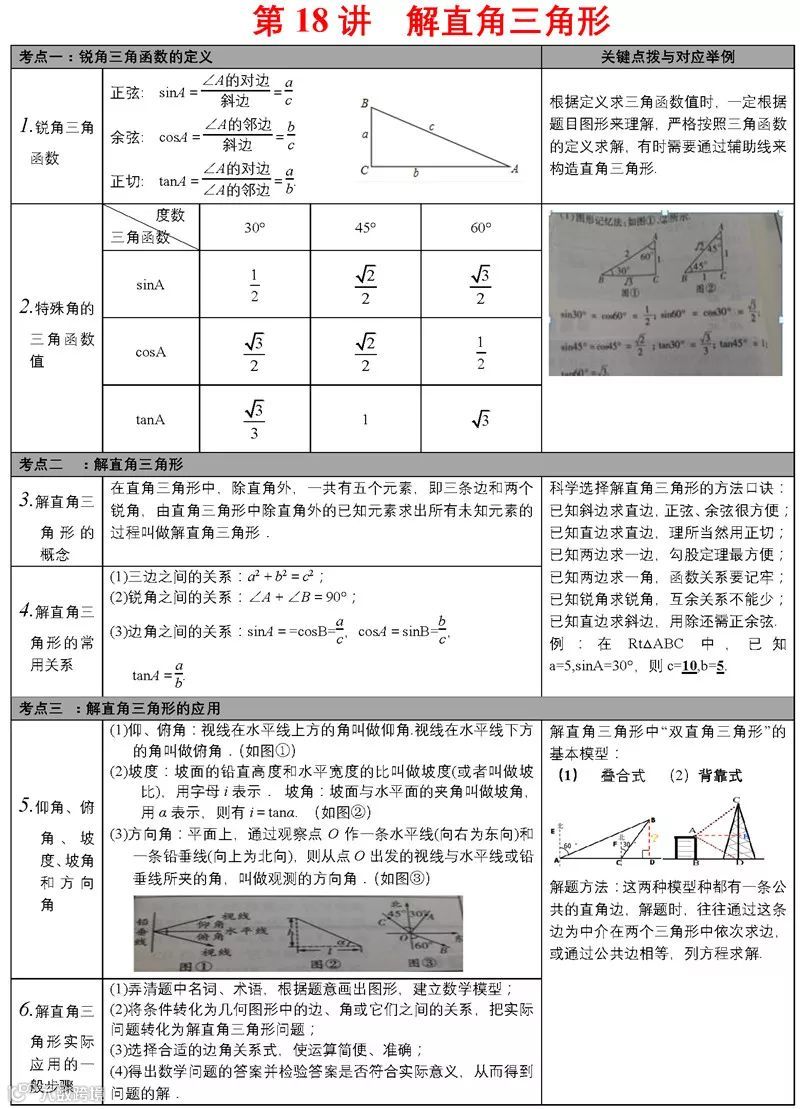 第 18 讲 解直角三角形
考点一：锐角三角函数的定义
关键点拨与对应举例
1.锐角三角
函数
正弦: sinA=∠A的对边/斜边=a/c
余弦: cosA=∠A的邻边/斜边=b/c
正切: tanA=∠A的对边/∠A的邻边=a/b.
B
a
c
C
b
A
根据定义求三角函数值时，一定根据
题目图形来理解，严格按照三角函数
的定义求解，有时需要通过辅助线来
构造直角三角形.
2.特殊角的
三角函数
值
度数
三角函数
30° 45° 60°
sinA 1/2 √2/2 √3/2
cosA √3/2 √2/2 1/2
tanA √3/3 1 √3
(1)图形记忆法:如图①、②所示.
A
2
60°
1
30°
B
√3
C
图①
A
√2
45°
1
45°
B
1
C
图②
sin30° = cos60° = 1/2; sin60° = cos30° = √3/2;
sin45°=cos45°=√2/2; tan30°=√3/3; tan45°=1;
tan60°=√3.
考点二 ：解直角三角形
3.解直角三
角形的
概念
在直角三角形中，除直角外，一共有五个元素，即三条边和两个
锐角，由直角三角形中除直角外的已知元素求出所有未知元素的
过程叫做解直角三角形．
科学选择解直角三角形的方法口诀：
已知斜边求直边，正弦、余弦很方便；
已知直边求直边，理所当然用正切；
已知两边求一边，勾股定理最方便；
已知两边求一角，函数关系要记牢；
已知锐角求锐角，互余关系不能少；
已知直边求斜边，用除还需正余弦.
例：在 Rt△ABC 中，已知
a=5,sinA=30°，则 c=10,b=5.
4.解直角三
角形的常
用关系
(1)三边之间的关系：a²＋b²＝c²；
(2)锐角之间的关系：∠A＋∠B＝90°；
(3)边角之间的关系：sinA＝=cosB=a/c，cosA＝sinB=b/c，
tanA＝a/b.
考点三 ：解直角三角形的应用
5.仰角、俯
角、坡
度、坡角
和方向
角
(1)仰、俯角：视线在水平线上方的角叫做仰角.视线在水平线下方
的角叫做俯角．（如图①）
(2)坡度：坡面的铅直高度和水平宽度的比叫做坡度(或者叫做坡
比)，用字母 i 表示． 坡角：坡面与水平面的夹角叫做坡角，
用 α 表示，则有 i＝tanα. （如图②）
(3)方向角：平面上，通过观察点 O 作一条水平线(向右为东向)和
一条铅垂线(向上为北向)，则从点 O 出发的视线与水平线或铅
垂线所夹的角，叫做观测的方向角．（如图③）
铅垂线
视线
仰角
水平线
俯角
视线
图①
h
α
l
图②
北
45°
30°
A
C
O
东
60°
B
图③
解直角三角形中“双直角三角形”的
基本模型：
（1） 叠合式 （2）背靠式
北
E
60°
A
北
F
30
C
B
?
D
A
B
C
E
D
解题方法：这两种模型种都有一条公
共的直角边，解题时，往往通过这条
边为中介在两个三角形中依次求边，
或通过公共边相等，列方程求解.
6.解直角三
角形实际
应用的一
般步骤
(1)弄清题中名词、术语，根据题意画出图形，建立数学模型；
(2)将条件转化为几何图形中的边、角或它们之间的关系，把实际
问题转化为解直角三角形问题；
(3)选择合适的边角关系式，使运算简便、准确；
(4)得出数学问题的答案并检验答案是否符合实际意义，从而得到
问题的解．